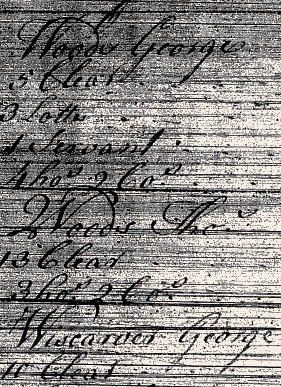 Woods George
5 Clear
3 Lotts
1 Servant
4 hos 2 Cos
Woods Tho
13 Clear
3 hos 2 Cos
Wiscarver George
11 Clear